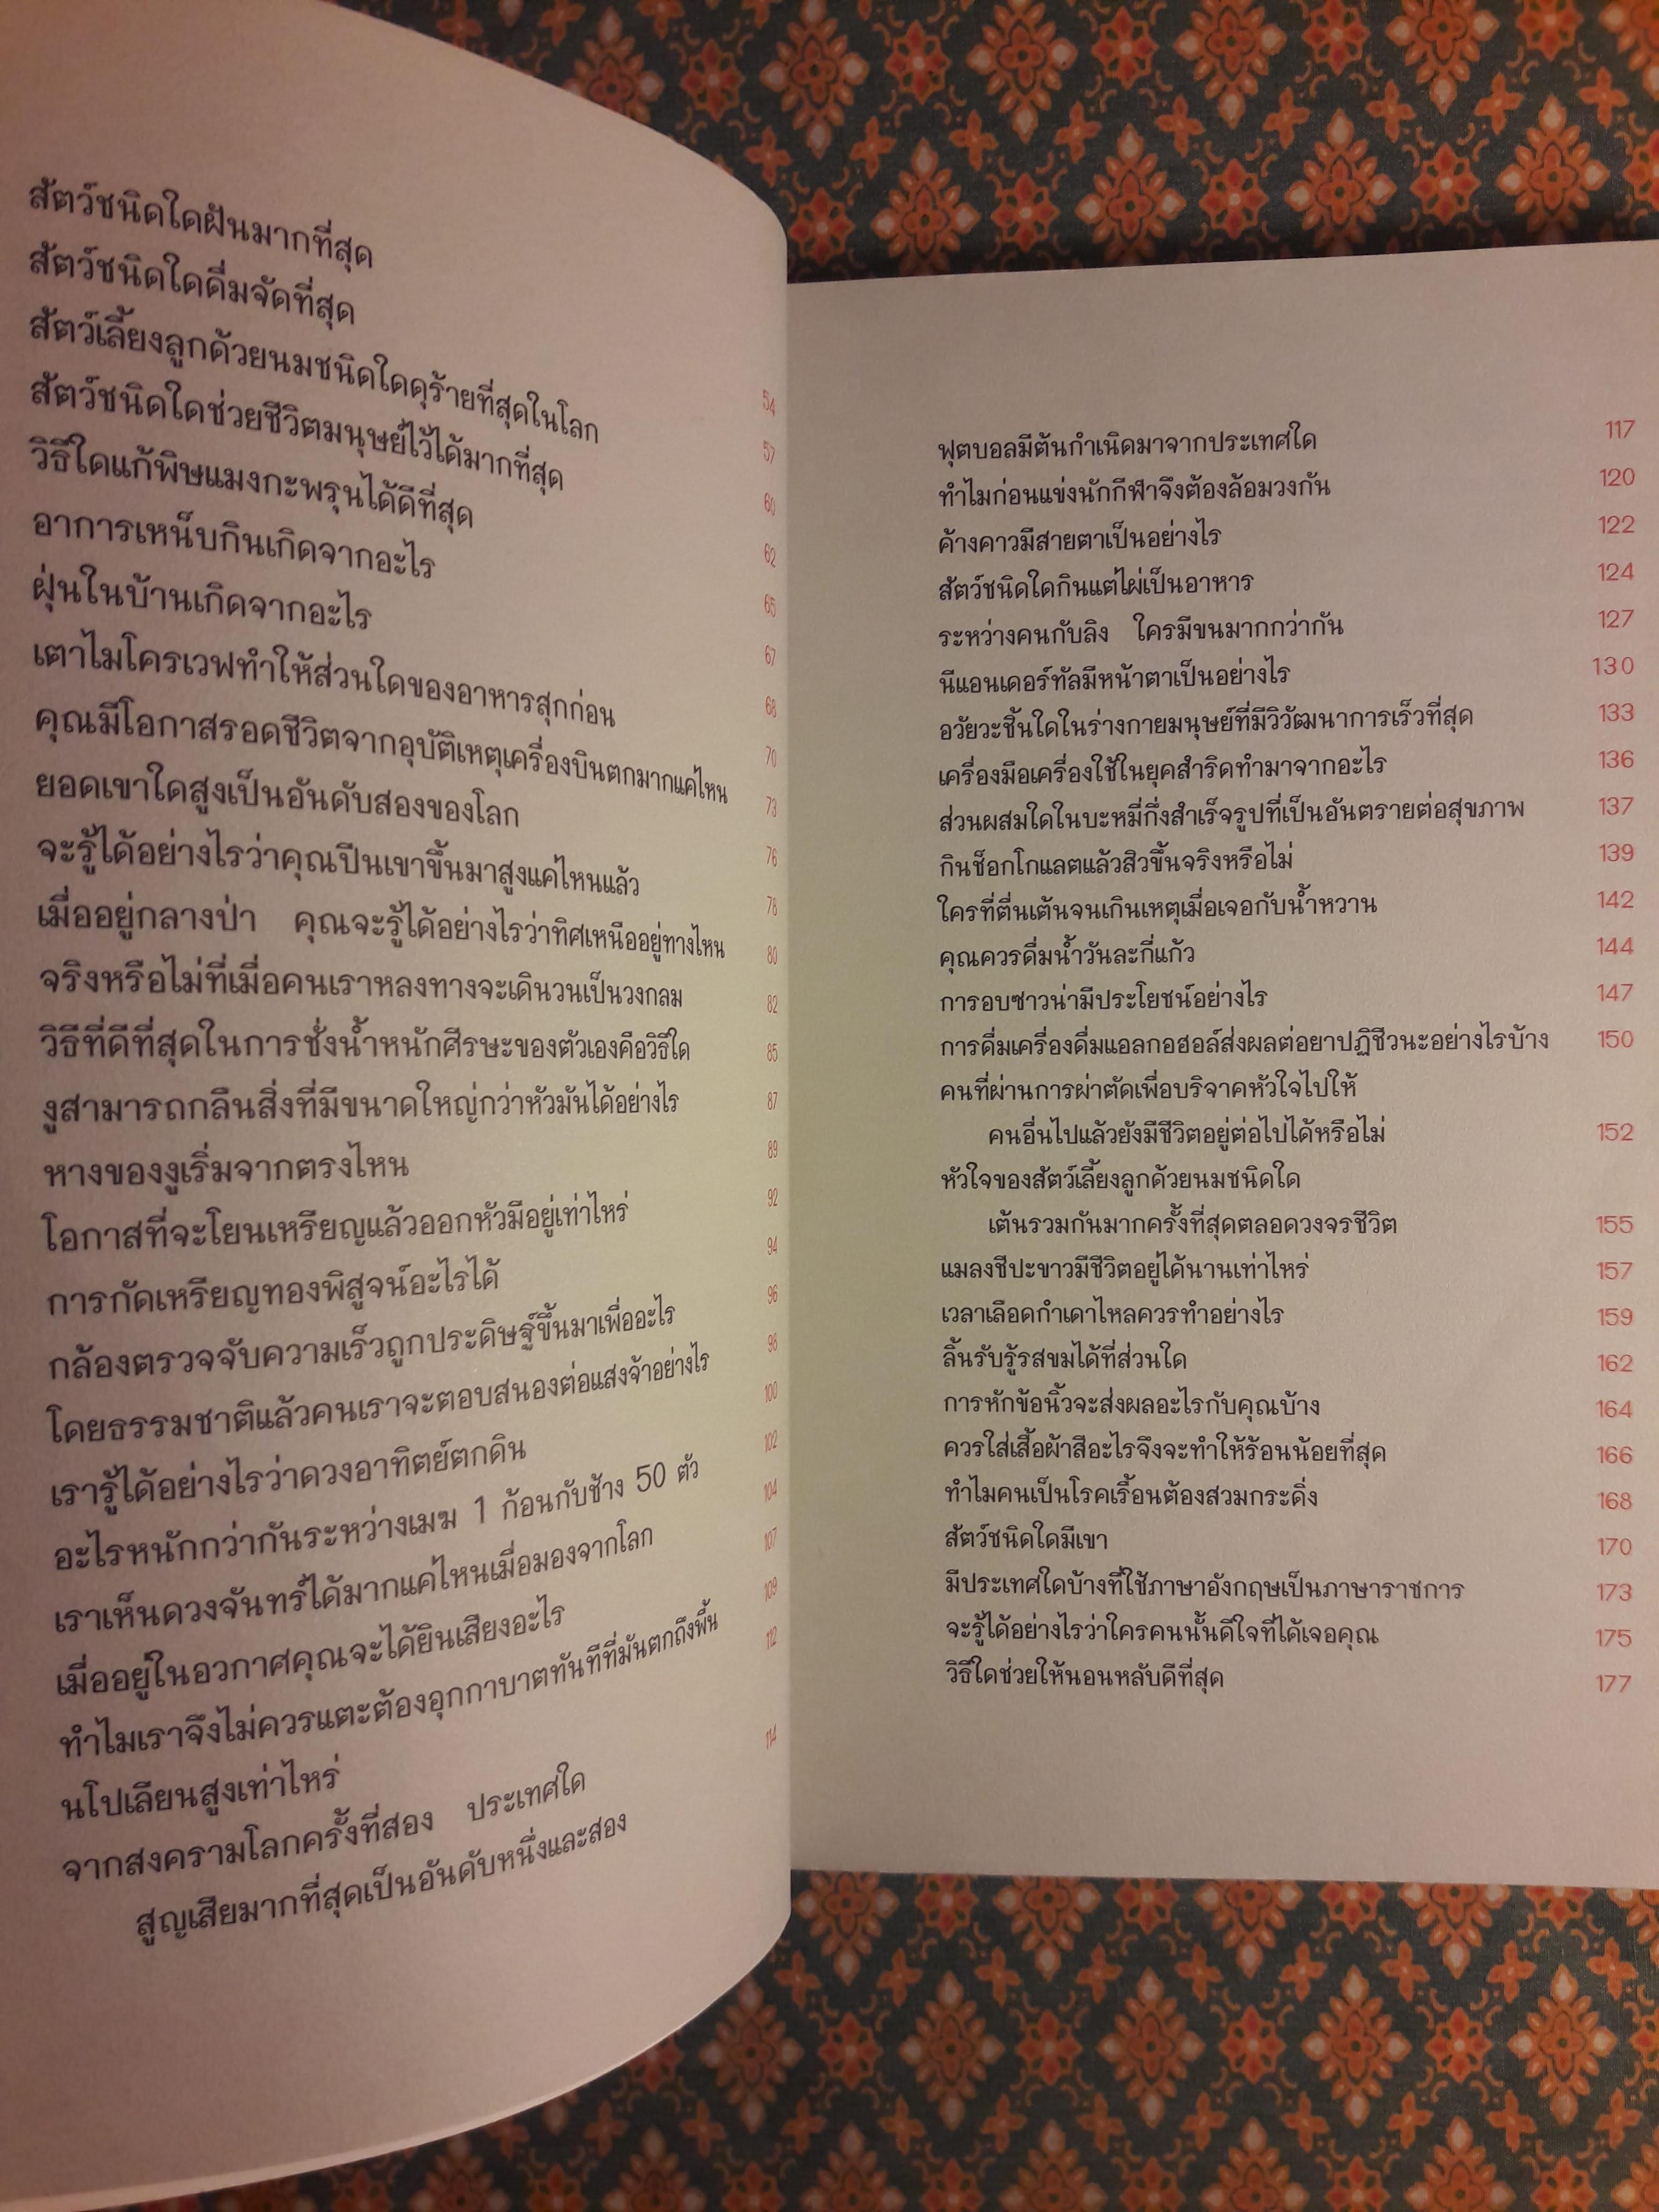 สัตว์ชนิดใดฝันมากที่สุด 54
สัตว์ชนิดใดดื่มจัดที่สุด 57
สัตว์เลี้ยงลูกด้วยนมชนิดใดดุร้ายที่สุดในโลก 60
สัตว์ชนิดใดช่วยชีวิตมนุษย์ไว้ได้มากที่สุด 62
วิธีใดแก้พิษแมงกะพรุนได้ดีที่สุด 65
อาการเหน็บกินเกิดจากอะไร 67
ฝุ่นในบ้านเกิดจากอะไร 68
เตาไมโครเวฟทำให้ส่วนใดของอาหารสุกก่อน 70
คุณมีโอกาสรอดชีวิตจากอุบัติเหตุเครื่องบินตกมากแค่ไหน 73
ยอดเขาใดสูงเป็นอันดับสองของโลก 76
จะรู้ได้อย่างไรว่าคุณปีนเขาขึ้นมาสูงแค่ไหนแล้ว 78
เมื่ออยู่กลางป่า คุณจะรู้ได้อย่างไรว่าทิศเหนืออยู่ทางไหน 80
จริงหรือไม่ที่เมื่อคนเราหลงทางจะเดินวนเป็นวงกลม 82
วิธีที่ดีที่สุดในการชั่งน้ำหนักศีรษะของตัวเองคือวิธีใด 85
งูสามารถกลืนสิ่งที่มีขนาดใหญ่กว่าหัวมันได้อย่างไร 87
หางของงูเริ่มจากตรงไหน 89
โอกาสที่จะโยนเหรียญแล้วออกหัวมีอยู่เท่าไหร่ 92
การกัดเหรียญทองพิสูจน์อะไรได้ 94
กล้องตรวจจับความเร็วถูกประดิษฐ์ขึ้นมาเพื่ออะไร 96
โดยธรรมชาติแล้วคนเราจะตอบสนองต่อแสงจ้าอย่างไร 98
เรารู้ได้อย่างไรว่าดวงอาทิตย์ตกดิน 100
อะไรหนักกว่ากันระหว่างเมฆ 1 ก้อนกับช้าง 50 ตัว 102
เราเห็นดวงจันทร์ได้มากแค่ไหนเมื่อมองจากโลก 104
เมื่ออยู่ในอวกาศคุณจะได้ยินเสียงอะไร 107
ทำไมเราจึงไม่ควรแตะต้องอุกกาบาตทันทีที่มันตกถึงพื้น 109
นโปเลียนสูงเท่าไหร่ 112
จากสงครามโลกครั้งที่สอง ประเทศใด
สูญเสียมากที่สุดเป็นอันดับหนึ่งและสอง 114
ฟุตบอลมีต้นกำเนิดมาจากประเทศใด 117
ทำไมก่อนแข่งนักกีฬาจึงต้องล้อมวงกัน 120
ค้างคาวมีสายตาเป็นอย่างไร 122
สัตว์ชนิดใดกินแต่ไผ่เป็นอาหาร 124
ระหว่างคนกับลิง ใครมีขนมากกว่ากัน 127
นีแอนเดอร์ทัลมีหน้าตาเป็นอย่างไร 130
อวัยวะชิ้นใดในร่างกายมนุษย์ที่มีวิวัฒนาการเร็วที่สุด 133
เครื่องมือเครื่องใช้ในยุคสำริดทำมาจากอะไร 136
ส่วนผสมใดในบะหมี่กึ่งสำเร็จรูปที่เป็นอันตรายต่อสุขภาพ 137
กินช็อกโกแลตแล้วสิวขึ้นจริงหรือไม่ 139
ใครที่ตื่นเต้นจนเกินเหตุเมื่อเจอกับน้ำหวาน 142
คุณควรดื่มน้ำวันละกี่แก้ว 144
การอบซาวน่ามีประโยชน์อย่างไร 147
การดื่มเครื่องดื่มแอลกอฮอล์ส่งผลต่อยาปฏิชีวนะอย่างไรบ้าง 150
คนที่ผ่านการผ่าตัดเพื่อบริจาคหัวใจไปให้
คนอื่นไปแล้วยังมีชีวิตอยู่ต่อไปได้หรือไม่ 152
หัวใจของสัตว์เลี้ยงลูกด้วยนมชนิดใด
เต้นรวมกันมากครั้งที่สุดตลอดวงจรชีวิต 155
แมลงชีปะขาวมีชีวิตอยู่ได้นานเท่าไหร่ 157
เวลาเลือดกำเดาไหลควรทำอย่างไร 159
ลิ้นรับรู้รสขมได้ที่ส่วนใด 162
การหักข้อนิ้วจะส่งผลอะไรกับคุณบ้าง 164
ควรใส่เสื้อผ้าสีอะไรจึงจะทำให้ร้อนน้อยที่สุด 166
ทำไมคนเป็นโรคเรื้อนต้องสวมกระดิ่ง 168
สัตว์ชนิดใดมีเขา 170
มีประเทศใดบ้างที่ใช้ภาษาอังกฤษเป็นภาษาราชการ 173
จะรู้ได้อย่างไรว่าใครคนนั้นดีใจที่ได้เจอคุณ 175
วิธีใดช่วยให้นอนหลับดีที่สุด 177